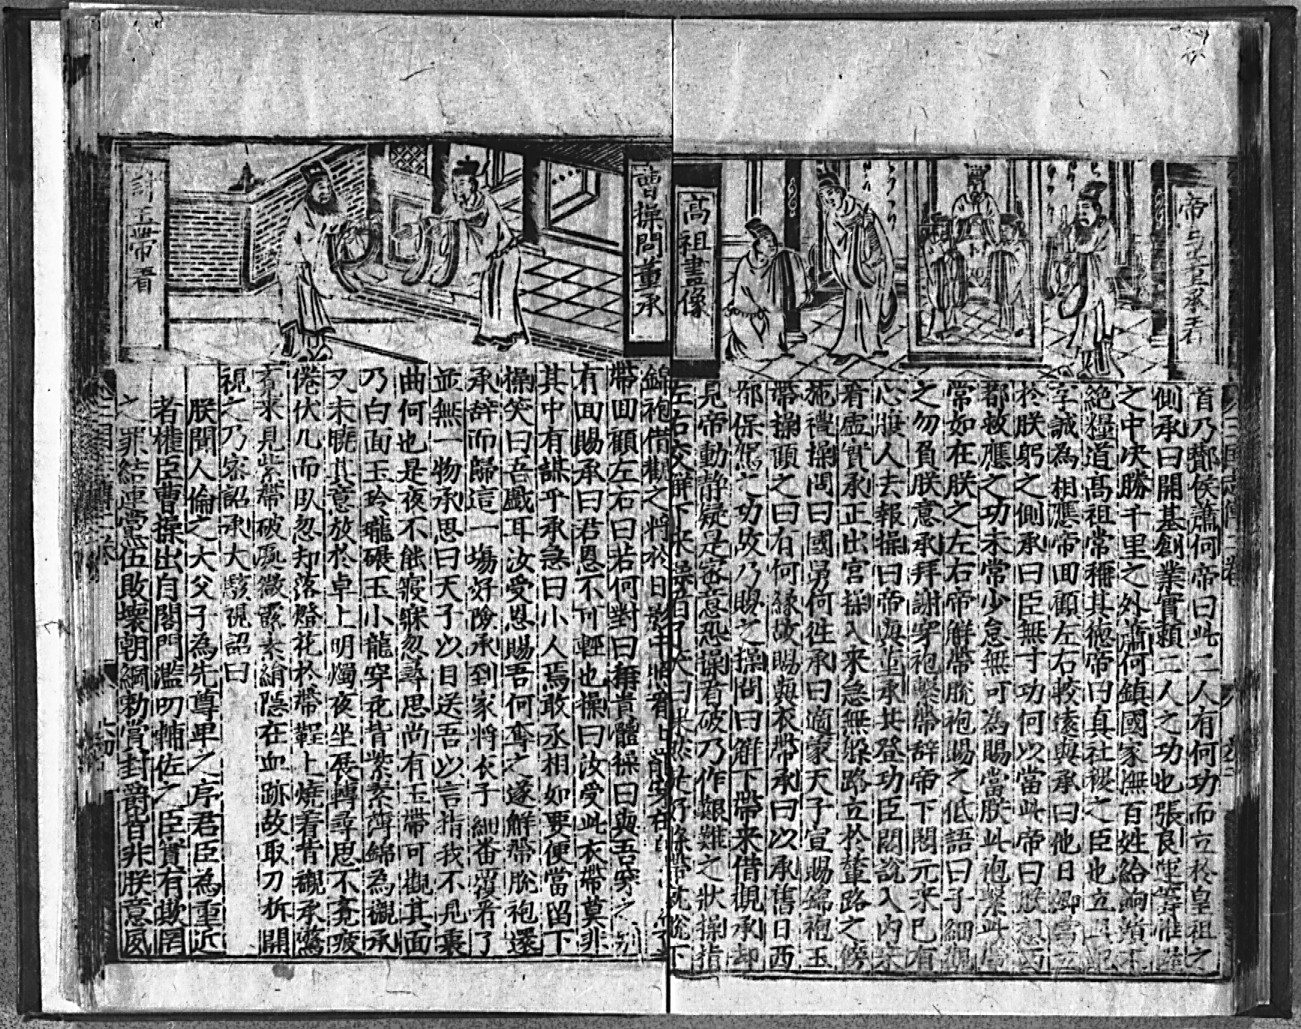 帝与董承看
高祖畫像
首乃酇侯蕭何帝曰此二人有何功而立於皇祖之
側承曰開基創業實賴二人之功也張良運籌帷幄
之中决勝千里之外蕭何鎮國家撫百姓給餉饋不
絕糧道髙祖常稱其德帝曰真社稷之臣也
字誠為相應帝回顧左右較遠與承曰他日卿當立
於朕躬之側承曰臣無寸功何以當此帝曰朕想西
都救應之功未常少怠無可為賜當朕此袍繫此帶
常如在朕之左右帝解帶脫袍賜之低語曰子細觀
之勿負朕意承拜謝穿袍繫帶辞帝下閣元來已有
心腹人去報操曰帝與董承共登功臣閣說入内來
看虛實承正出宮操入來急無躲路立於輦路之傍
施禮操問曰國舅何往承曰適蒙天子宣賜錦袍玉
帶操頭之曰有何緣故賜與衣帶承曰以承舊日西
都保駕之功故乃賜之操問曰解下帶來借觀承却
見帝動静疑是密意恐操看破乃作艱難之狀操指
左右交解下來操看了大曰果然是好條帶就脫下
曹操問董承
討玉帶看
錦袍借觀之將於日影中照看上前穿在
帶回顧左右曰若何對曰稱貴體操曰與吾穿之
有回賜承曰君恩不可輕也操曰汝受此衣帶莫非
其中有謀乎承急曰小人焉敢丞相如要便當留下
操笑曰吾戲耳汝受恩賜吾何奪之遂解帶脫袍還
承辞而歸這一塲好險承到家將衣子細番覆看了
並無一物承思曰天子以目送吾以言指我不見裏
曲何也是夜不能寢寐忽尋思尚有玉帶可觀其面
乃白面玉玲瓏碾玉小龍穿花背紫繫薄錦為襯承
又未曉其意放於卓上明燭夜坐展轉尋思不寛疲
倦伏几而臥忽却落燈花於帶鞓上燒着背襯承驚
看來見紫帶破處微露素絹隱在血跡故取刀拆開
視之乃密詔承大駭視詔曰
朕聞人倫之大父子為先尊卑之序君臣為重近
者權臣曹操出自閣門濫叨輔佐之臣實有欺罔
之罪結連黨伍敗壞朝綱勅賞封爵皆非朕意夙